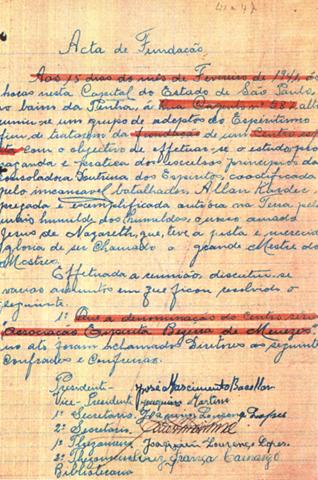 Acta de Fundação
Aos 15 dias do mês de Fevereiro de 1941, ás
horas nesta Capital do Estado de São Paulo,
no bairro da Penha, á Rua nº 287, alli
reuniu-se um grupo de adeptos do Espiritismo
fim de tratarem da fundação de um Centro
com o objectivo de effetuar-se o estudo,
aganda e pratica dos excelsos principios da
onsoladora Doutrina dos Espiritos, coodificada
pelo incansavel batalhador Allan Kardec
pregada e exemplificada outróra na Terra pelo
mais humilde dos humildes, o nosso amado
Jesus de Nazareth, que, teve a justa e merecida
gloria de ser Chamado o grande Mestre dos
Mestres.
Effetuada a reunião, discutiu-se
varios assuntos em que ficou resolvido o
seguinte:
1º Que a denominação do Centro será
"Associação Espirita Bezerra de Menezes"
no ato foram acclamados Diretores os seguintes
Confrades e Confreiras:
Presidente - José Nascimento
Vice-Presidente Joaquim Martins
1º Secretario.
2º Secretario.
1º Thezoureiro Joaquim Lourenço
2º Thezoureiro Camargo
Bibliotecario